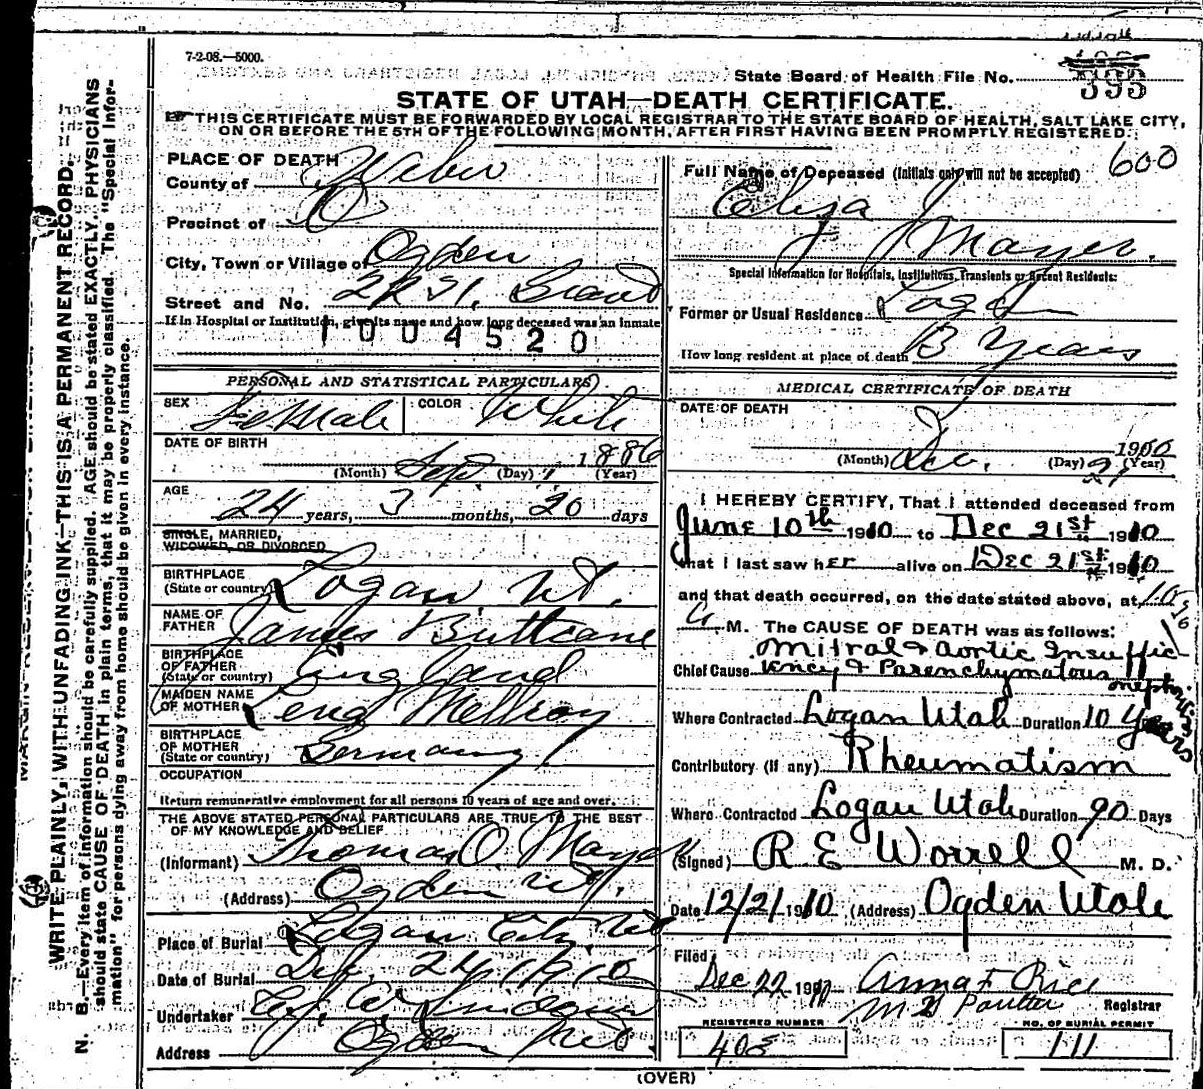 7-2-08.—5000.
State Board of Health File No. 395
STATE OF UTAH—DEATH CERTIFICATE.
THIS CERTIFICATE MUST BE FORWARDED BY LOCAL REGISTRAR TO THE STATE BOARD OF HEALTH, SALT LAKE CITY,
ON OR BEFORE THE 5TH OF THE FOLLOWING MONTH, AFTER FIRST HAVING BEEN PROMPTLY REGISTERED.
600
WRITE PLAINLY, WITH UNFADING INK—THIS IS A PERMANENT RECORD.
N. B.—Every item of information should be carefully supplied. AGE should be stated EXACTLY. PHYSICIANS
should state CAUSE OF DEATH in plain terms, that it may be properly classified. The "Special Infor-
mation" for persons dying away from home should be given in every instance.
PLACE OF DEATH
County of Weber
Precinct of
City, Town or Village of Ogden
Street and No. Grant
If in Hospital or Institution, give its name and how long deceased was an inmate
1004520
PERSONAL AND STATISTICAL PARTICULARS
SEX Female COLOR White
DATE OF BIRTH
Sep. 1 1886
(Month) (Day) (Year)
AGE
24 years, 3 months, 20 days
SINGLE, MARRIED,
WIDOWED, OR DIVORCED
BIRTHPLACE
(State or country) Logan Ut.
NAME OF
FATHER James
BIRTHPLACE
OF FATHER
(State or country) England
MAIDEN NAME
OF MOTHER Lena
BIRTHPLACE
OF MOTHER
(State or country) Germany
OCCUPATION
Return remunerative employment for all persons 10 years of age and over.
THE ABOVE STATED PERSONAL PARTICULARS ARE TRUE TO THE BEST
OF MY KNOWLEDGE AND BELIEF
(Informant) Thomas O. Mayer
(Address) Ogden Ut.
Place of Burial Logan City, Ut
Date of Burial 24, 1910
Undertaker
Address Ogden
Full Name of Deceased (Initials only will not be accepted)
Eliza J Mayer.
Special Information for Hospitals, Institutions, Transients or Recent Residents:
Former or Usual Residence
How long resident at place of death Years
MEDICAL CERTIFICATE OF DEATH
DATE OF DEATH
Dec. 21 1910
(Month) (Day) (Year)
I HEREBY CERTIFY, That I attended deceased from
June 10th 1910 to Dec 21st 1910
that I last saw her alive on Dec 21st 1910
and that death occurred, on the date stated above, at
M. The CAUSE OF DEATH was as follows:
Mitral & Aortic Insuffic
Chief Cause iency & Parenchymatous nephritis
Where Contracted Logan Utah Duration 10 Years
Contributory (if any) Rheumatism
Where Contracted Logan Utah Duration 90 Days
(Signed) R E Worrell M. D.
Date 12/21 1910 (Address) Ogden Utah
Filed
Dec 22 1910 Anna F Rice
Registrar
REGISTERED NUMBER
408
NO. OF BURIAL PERMIT
111
(OVER)